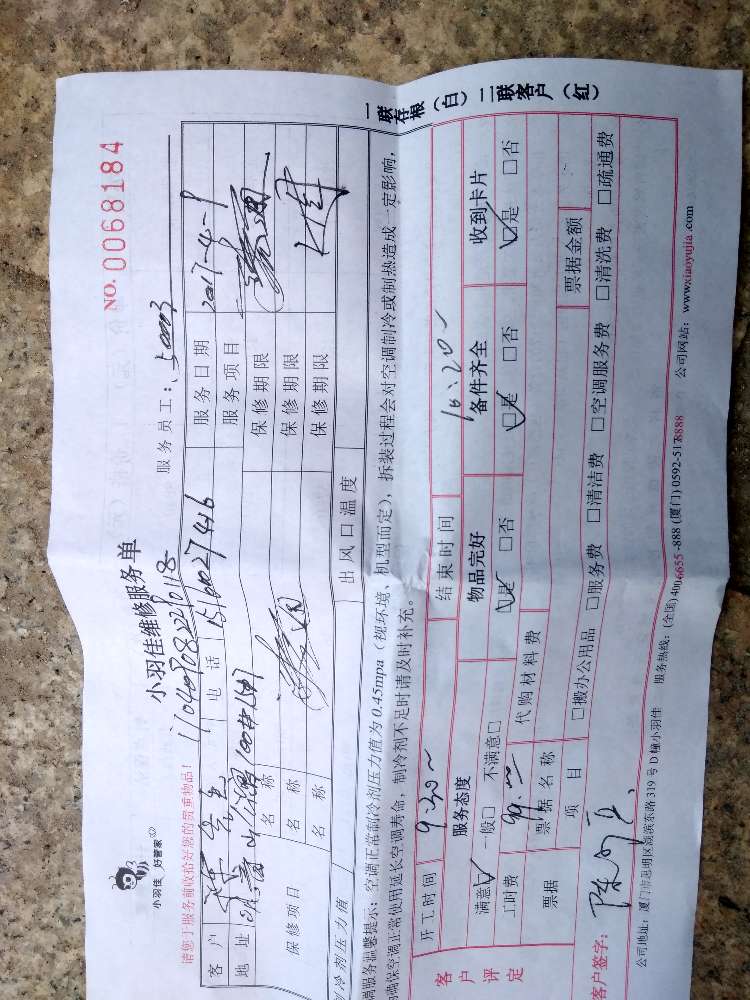 小羽佳 好管家
小羽佳维修服务单
NO. 0068184
请您于服务前收拾好您的贵重物品!
服务员工:
客户
电话
服务日期 2017-4-9
地址
服务项目
保修项目
名称
保修期限
名称
保修期限
名称
保修期限
制冷剂压力值
出风口温度
调服务温馨提示:空调正常制冷剂压力值为0.45mpa(视环境、机型而定),拆装过程会对空调制冷或制热造成一定影响,
确保空调正常使用延长空调寿命,制冷剂不足时请及时补充。
开工时间 9:30
结束时间 10:20
客户评定
服务态度
物品完好
备件齐全
收到卡片
满意☑ 一般□ 不满意□
☑是 □否
☑是 □否
☑是 □否
工时费
代购材料费
票据
票据名称
票据金额
项目
□搬办公用品 □服务费 □清洁费 □空调服务费 □清洗费 □疏通费
客户签字:
公司地址:厦门市思明区湖滨东路319号D幢小羽佳 服务热线:(全国)4006655-888(厦门)0592-5178888 公司网站:www.xiaoyujia.com
一联存根(白)二联客户(红)